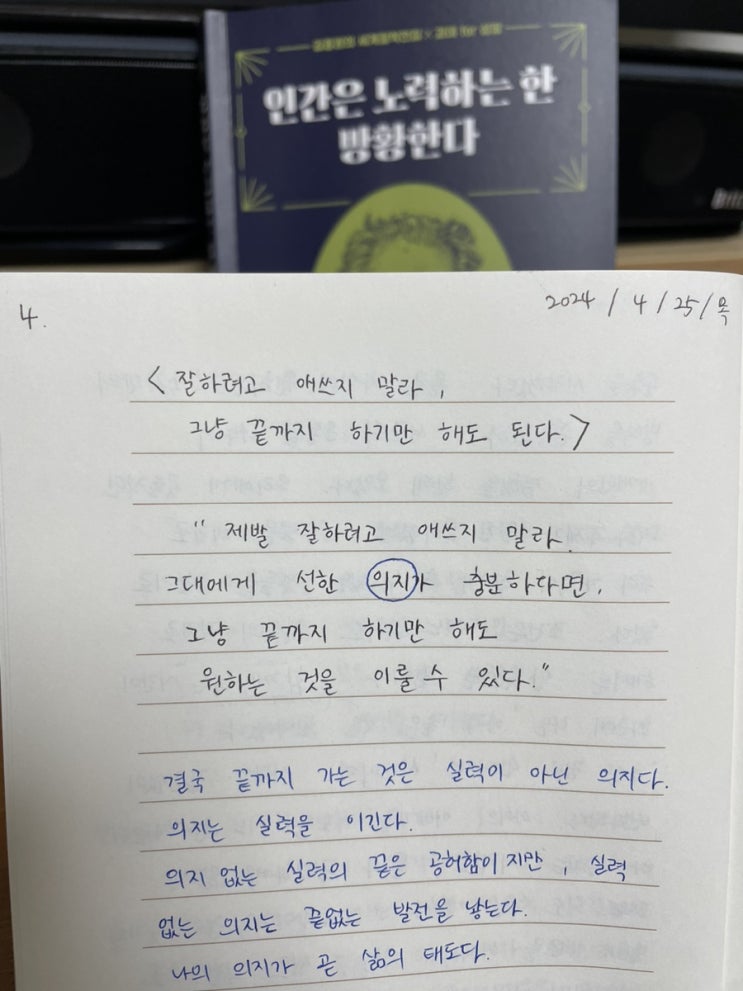 김종원의 세계철학전집 × 괴테 for 성장
인간은 노력하는 한
방황한다
Brit
4.
2024 / 4 / 25 / 목
< 잘하려고 애쓰지 말라,
그냥 끝까지 하기만 해도 된다. >
" 제발 잘하려고 애쓰지 말라.
그대에게 선한 의지가 충분하다면,
그냥 끝까지 하기만 해도
원하는 것을 이룰 수 있다."
결국 끝까지 가는 것은 실력이 아닌 의지다.
의지는 실력을 이긴다.
의지 없는 실력의 끝은 공허함이지만, 실력
없는 의지는 끝없는 발전을 낳는다.
나의 의지가 곧 삶의 태도다.